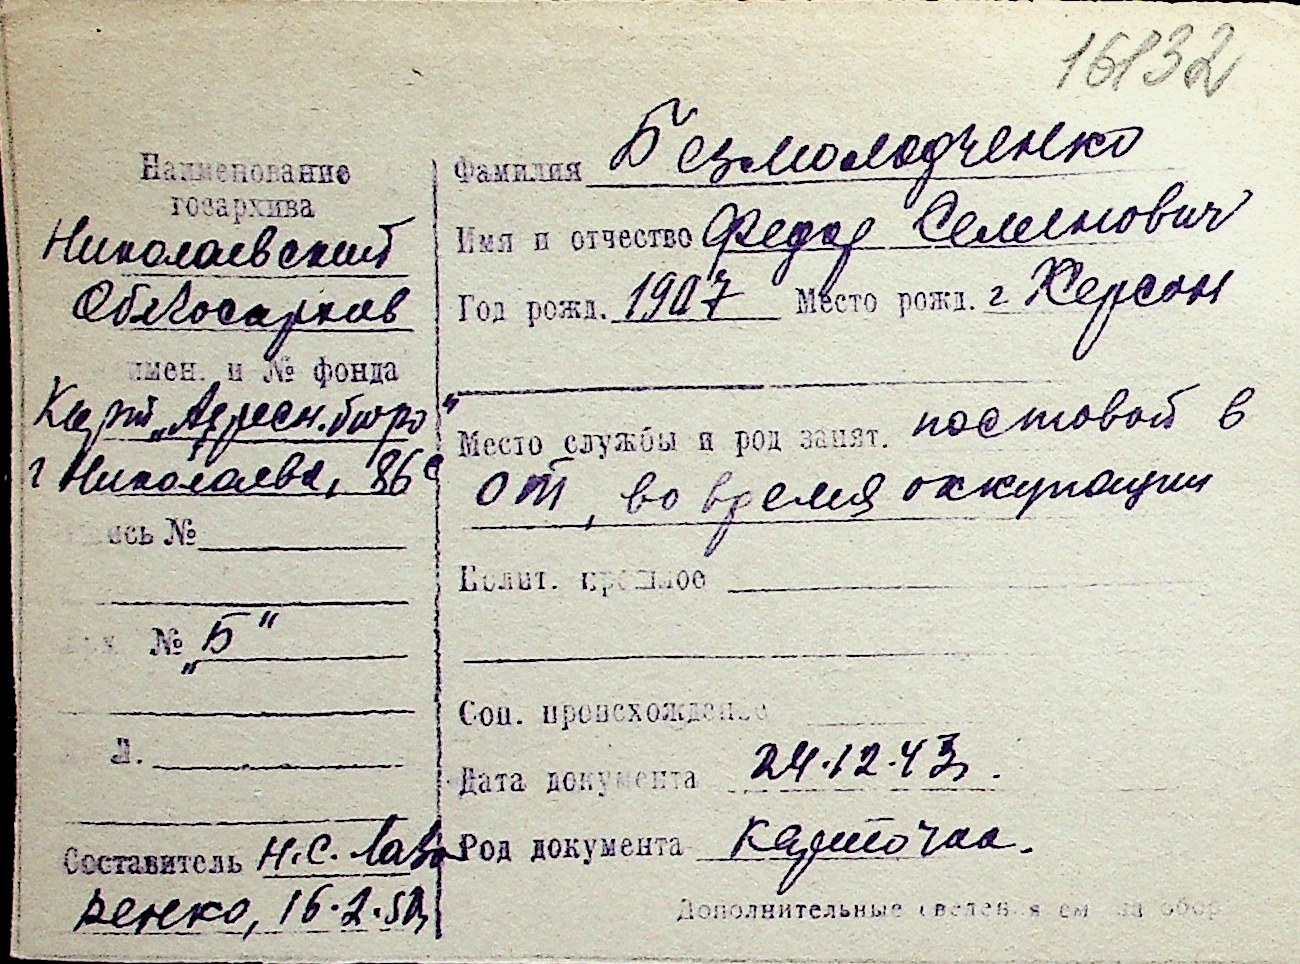 16132
Наименование
госархива
Николаевский
Облгосархив
имен. и № фонда
Карт. „Адресн. бюро"
г Николаева, 86с
пись №
№ „Б"
Л.
Составитель Н.С. Лав
ренко, 16.2.52
Фамилия Безмолодченко
Имя и отчество Федор Семенович
Год рожд. 1907 Место рожд. г Херсон
Место службы и род занят. постовой в
ОТ, во время оккупации
Полит. прошлое
Соц. происхождение
Дата документа 24.12.43.
Род документа карточка.
Дополнительные сведения см. на обор